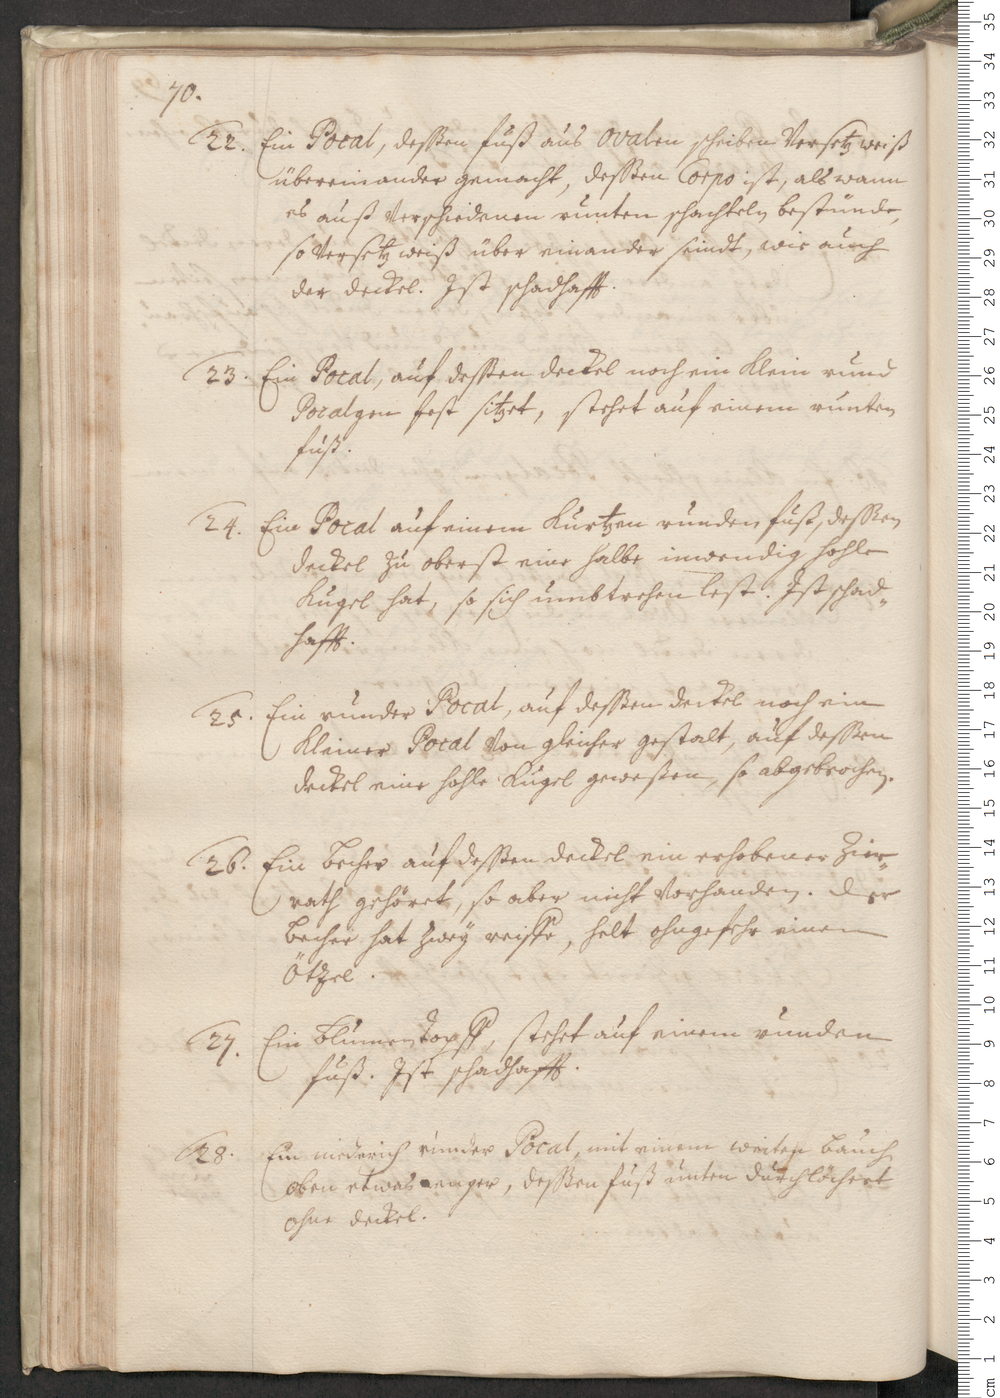 70.
22. Ein Pocal, deßen fuß aus ovalen scheiben Versetzweiß
übereinander gemacht, deßen Corpo ist, als wann
es auß Verschiedenen runten schachteln bestünde,
so Versetzweiß über einander seindt, wie auch
der deckel. Ist schadhafft.
23. Ein Pocal, auf deßen deckel noch ein klein rund
Pocalgen fest sitzet, stehet auf einem runten
fuß.
24. Ein Pocal auf einem kurtzen runden fuß, deßen
deckel zu oberst eine halbe inwendig hohle
Kugel hat, so sich umbtrehen lest. Ist schad-
hafft.
25. Ein runder Pocal, auf deßen deckel noch ein
kleiner Pocal Von gleicher gestalt, auf deßen
deckel eine hohle Kugel geweßen, so abgebrochen.
26. Ein Becher auf deßen deckel ein erhobener Zier-
rath gehöret, so aber nicht Vorhanden. der
Becher hat zwey reiffe, helt ohngefehr einen
Ötzel.
27. Ein Blumentopff, stehet auf einem runden
fuß. Ist schadhafft.
28. Ein niederich runder Pocal, mit einem weiten bauch
oben etwas enger, deßen fuß unten durchlöchert
ohne deckel.
35
34
33
32
31
30
29
28
27
26
25
24
23
22
21
20
19
18
17
16
15
14
13
12
11
10
9
8
7
6
5
4
3
2
1
cm